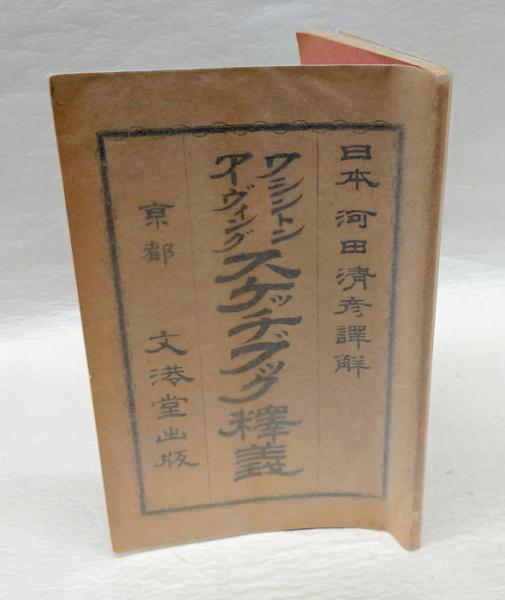 日本 河田清彦譯解
ワシントン
アーヴィング
スケッチブック釋義
京都 文港堂出版